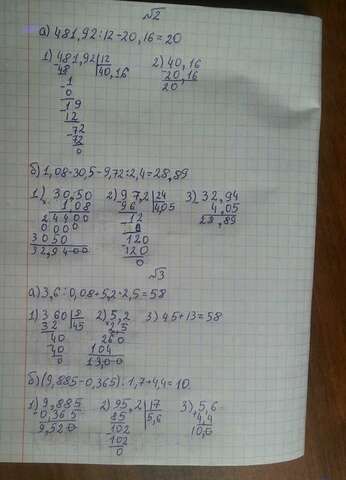 √2
а) 481,92:12-20,16=20
1) 481,92|12 2) 40,16
-48 |40,16 -20,16
-1 20
0
-19
12
-72
72
0
б) 1,08·30,5-9,72:2,4=28,89
1) 30,50 2) 97,2|24 3) 32,94
1,08 96 |4,05 4,05
24400 -12 28,89
0000 0
3050 -120
32,9400 120
0
√3
а) 3,6:0,08+5,2·2,5=58
1) 360|8 2) 5,2 3) 45+13=58
32 |45 2,5
40 260
40 104
0 13,00
б) (9,885-0,365)·1,7+4,4=10
1) 9,885 2) 95,2|17 3) 5,6
-0,365 85 |5,6 4,4
9,520 102 10,0
102
0